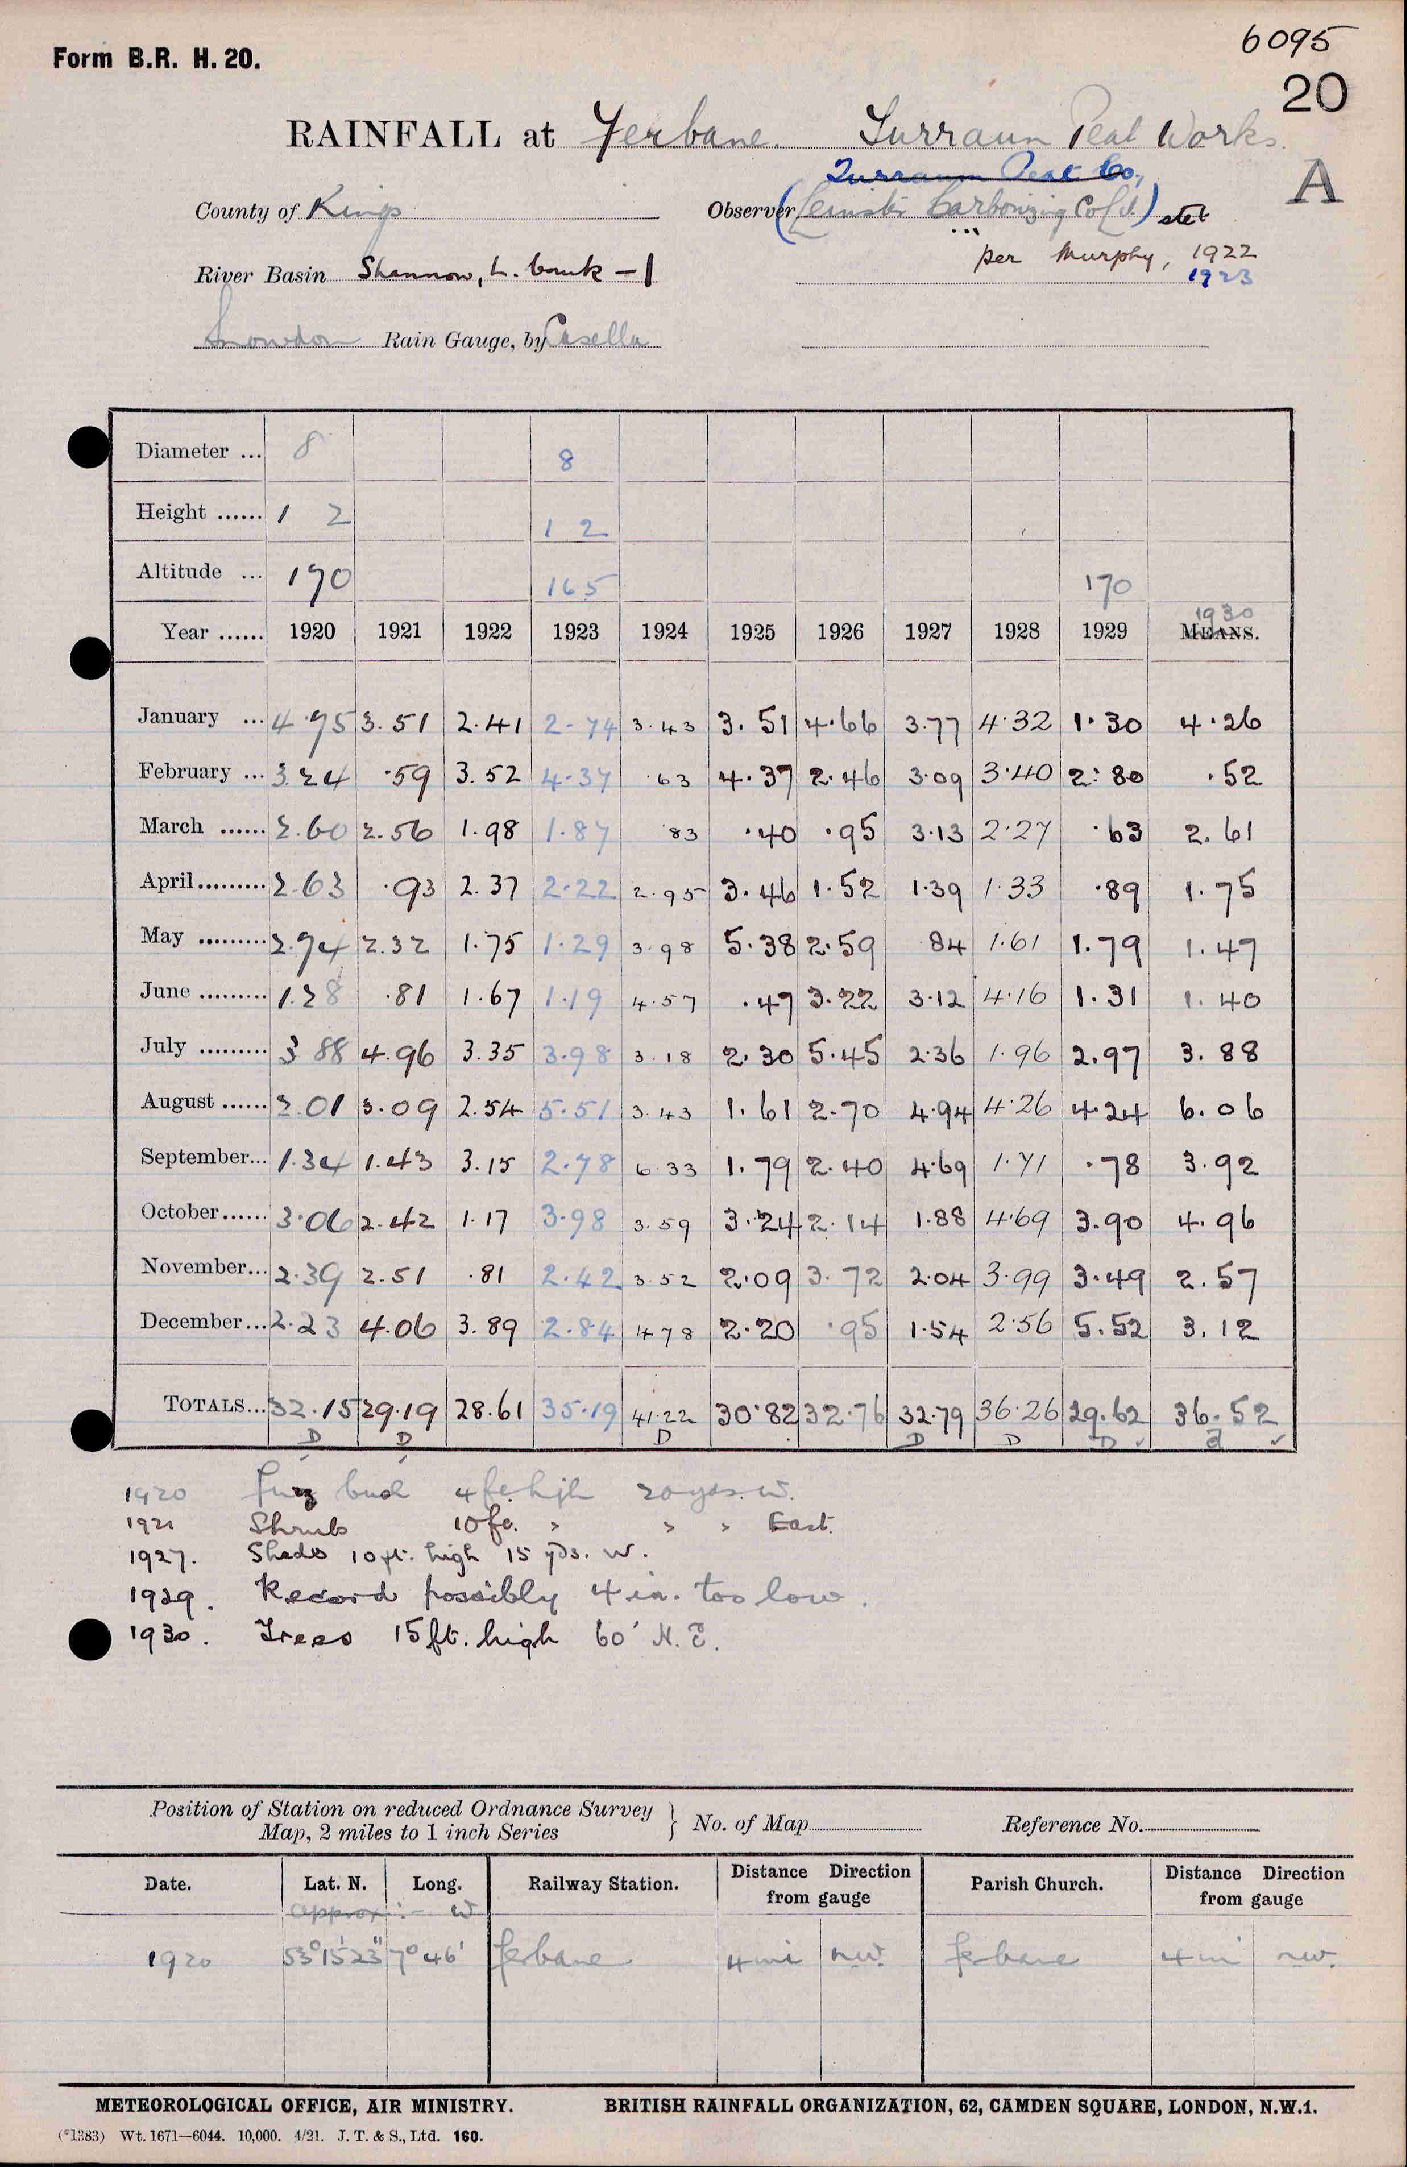 6095
Form B.R. H. 20.
20
RAINFALL at Ferbane. Turraun Peat Works.
Turraun Peat Co,
A
County of Kings
Observer (Leinster Carbonizing Co Ld.) stet
per Murphy, 1922
River Basin Shannon, L. bank - 1
1923
Snowdon Rain Gauge, by Casella
Diameter ... 8 8
Height ...... 1 2 1 2
Altitude ... 170 165 170
1930
Year ...... 1920 1921 1922 1923 1924 1925 1926 1927 1928 1929 MEANS.
January ... 4.95 3.51 2.41 2.74 3.43 3.51 4.66 3.77 4.32 1.30 4.26
February ... 3.24 .59 3.52 4.37 .63 4.37 2.46 3.09 3.40 2.80 .52
March ...... 2.60 2.56 1.98 1.87 .83 .40 .95 3.13 2.27 .63 2.61
April......... 2.63 .93 2.37 2.22 2.95 3.46 1.52 1.39 1.33 .89 1.75
May ......... 2.74 2.32 1.75 1.29 3.98 5.38 2.59 84 1.61 1.79 1.47
June ......... 1.28 .81 1.67 1.19 4.57 .47 3.22 3.12 4.16 1.31 1.40
July ......... 3 88 4.96 3.35 3.98 3.18 2.30 5.45 2.36 1.96 2.97 3.88
August ...... 2.01 3.09 2.54 5.51 3.43 1.61 2.70 4.94 4.26 4.24 6.06
September... 1.34 1.43 3.15 2.78 6.33 1.79 2.40 4.69 1.71 .78 3.92
October...... 3.06 2.42 1.17 3.98 3.59 3.24 2.14 1.88 4.69 3.90 4.96
November... 2.39 2.51 .81 2.42 3.52 2.09 3.72 2.04 3.99 3.49 2.57
December... 2.23 4.06 3.89 2.84 4.78 2.20 .95 1.54 2.56 5.52 3.12
TOTALS... 32.15 29.19 28.61 35.19 41.22 30.82 32.76 32.79 36.26 29.62 36.52
D D D D D D
1920 Furz bush 4 ft. high 20 yds. W.
1921 Shrub 10 ft. " " " East.
1927. Sheds 10 ft. high 15 yds. W.
1929. Record possibly 4 in. too low.
1930. Trees 15 ft. high 60' N.E.
Position of Station on reduced Ordnance Survey
Map, 2 miles to 1 inch Series
No. of Map
Reference No.
Date. Lat. N. Long. Railway Station. Distance Direction from gauge Parish Church. Distance Direction from gauge
approx :- W
1920 53° 15' 23" 7° 46' Ferbane 4 mi NW. Ferbane 4 mi NW.
METEOROLOGICAL OFFICE, AIR MINISTRY. BRITISH RAINFALL ORGANIZATION, 62, CAMDEN SQUARE, LONDON, N.W.1.
(*1383) Wt. 1671—6044. 10,000. 4/21. J. T. & S., Ltd. 160.